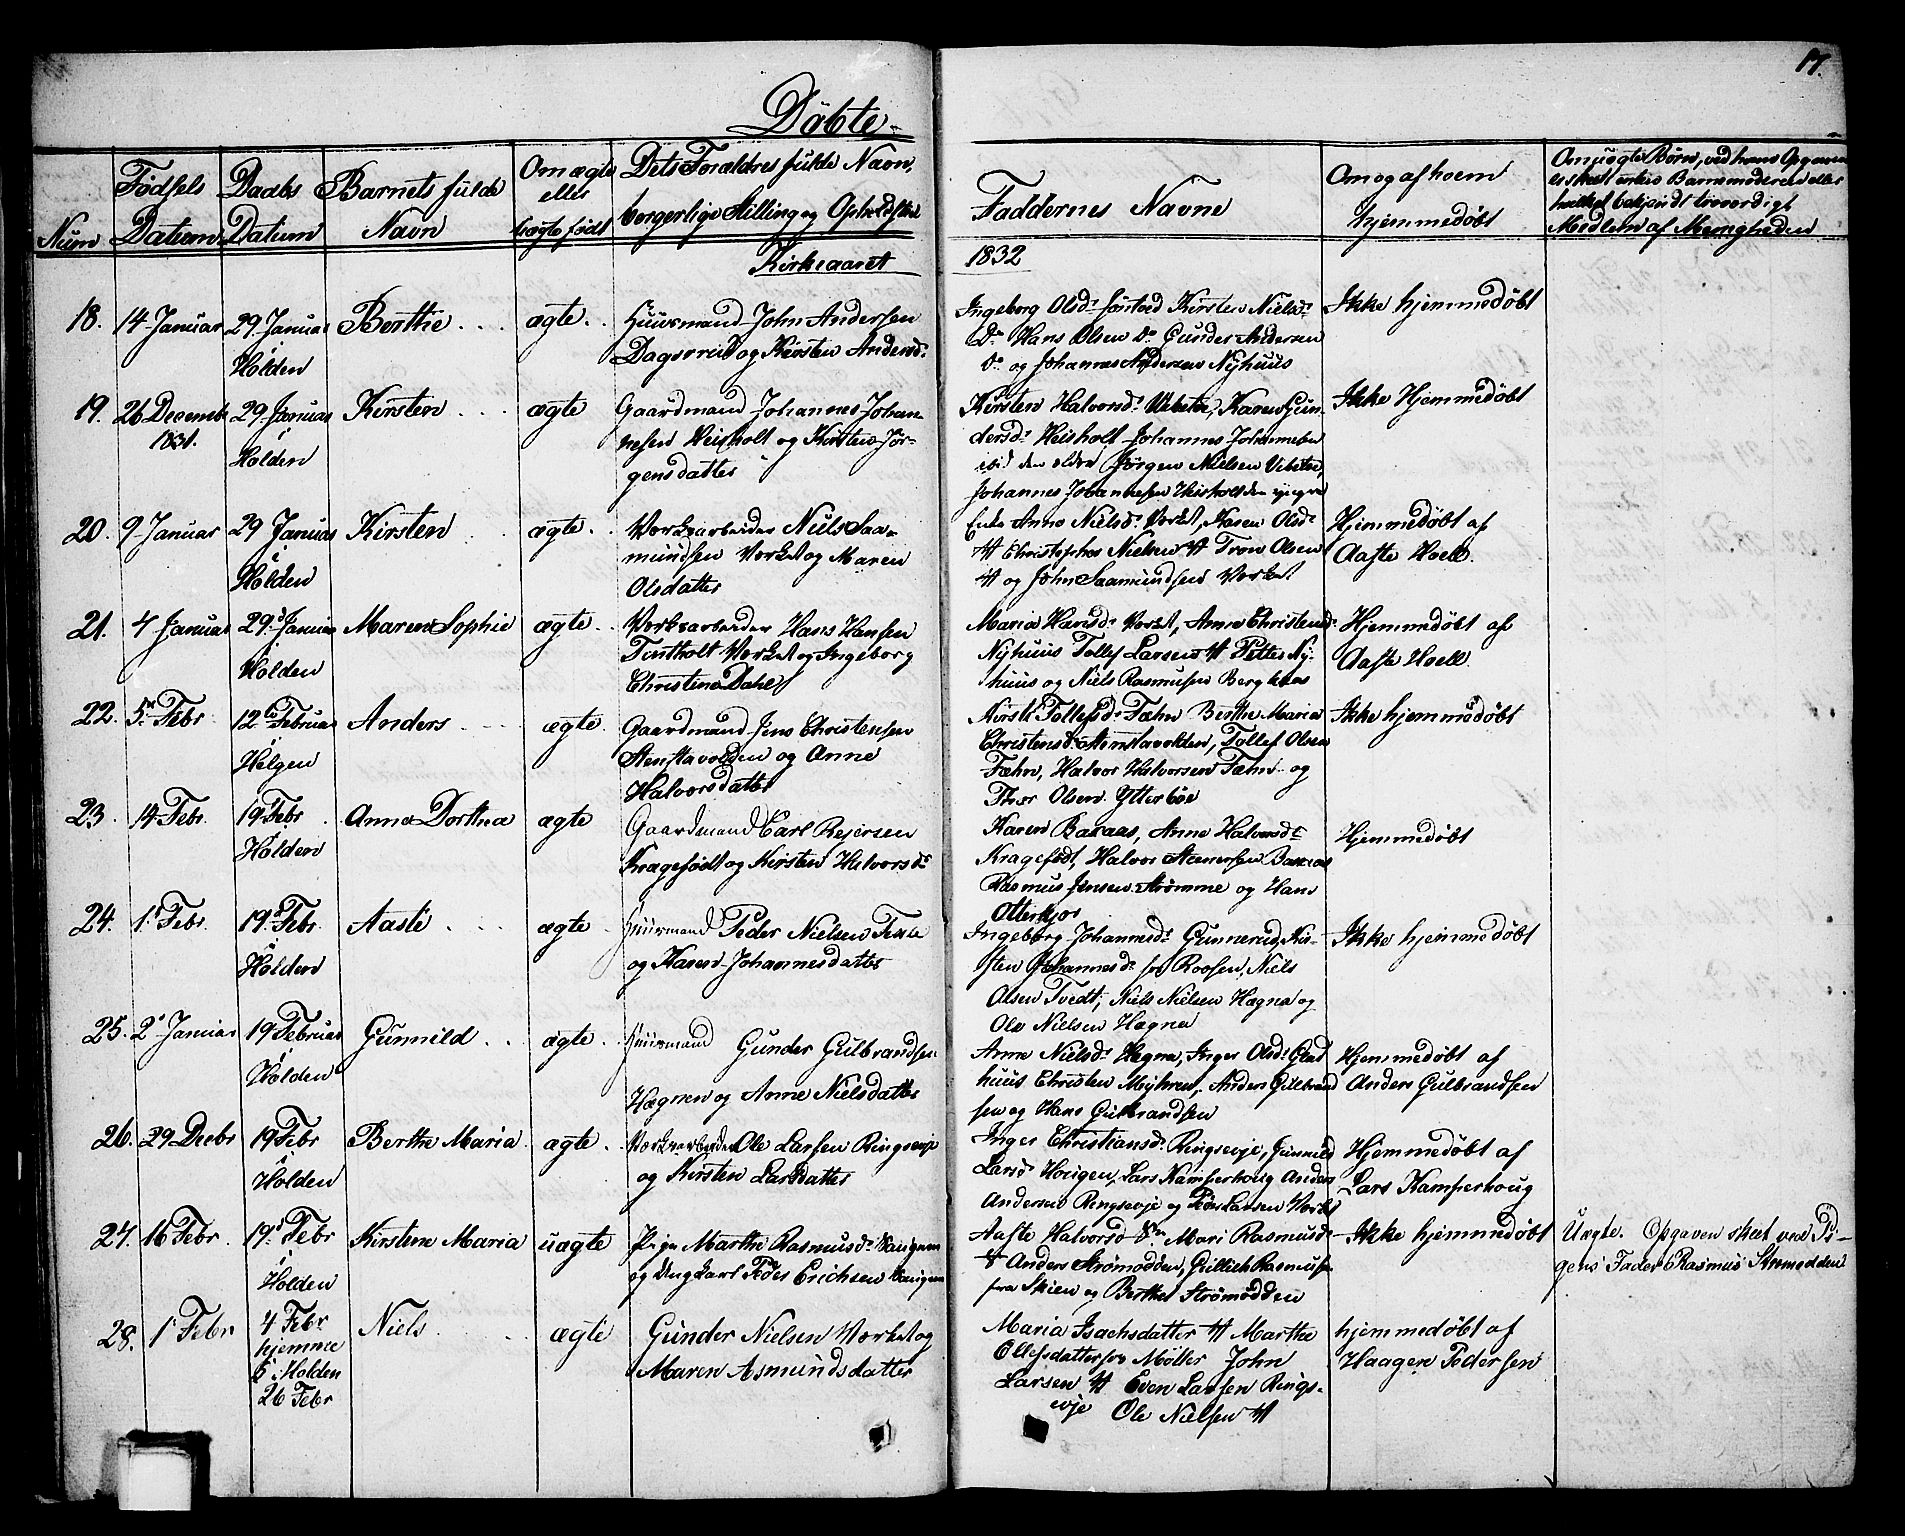 17.
Döbte.
Num
Födsels Datum
Daabs Datum
Barnets fulde Navn
Om ægte eller uægte födt
Dets Forældres fulde Navn, borgerlige Stilling og Opholdssted
Faddernes Navne
Om og af hvem hjemmedøbt
Om uægte Børn, ved hvem Opgaven er skeet enten Barnmoderen eller hvilket bekjendt troværdigt Medlem af Menigheden
Kirkeaaret
1832
18. 14 Januar
29 Januar i Holden
Berthe
ægte
Huusmand John Andersen
Dagsrud og Kirsten Andersd.
Ingeborg Olsdr. Kirsten Nielsdr.
Do. Hans Olsen Do. Gunder Andersen
Do. og Johannes Andersen Nyhuus
Ikke hjemmedøbt
19. 26 Decemb 1831.
29 Januar i Holden
Kirsten
ægte
Gaardmand Johannes Johan-
nesen Heisholt og Kirsten Jør-
gensdatter
Kirsten Halvorsdr. Vibetoe, Karen Gun-
dersdr. Heisholt Johannes Johannesen
ibid den eldre Jörgen Nielsen Vibetoe,
Johannes Johannesen Heisholt den yngre
Ikke Hjemmedøbt
20. 9 Januar
29 Januar i Holden
Kirsten
ægte
Verksarbeider Niels Saa-
mundsen Verket og Maren
Olsdatter
Enke Anne Nielsdr. Verket, Karen Olsdr.
Christopher Nielsen Tron Olsen
og John Saamundsen Verket
Hjemmedøbt af
Aaste Hoell.
21. 4 Januar
29 Januar i Holden
Maren Sophie
ægte
Verksarbeider Hans Hansen
Tintholt Verket og Ingeborg
Christine Dahl
Maria Hansdr. Verket, Anne Christensdr.
Nyhuus Tollef Larsen Petter Ny-
huus og Niels Rasmusen Bergkaas
Hjemmedøbt af
Aaste Hoell.
22. 5 Febr
12te Februar i Helgen
Anders
ægte
Gaardmand Jens Christensen
Stenstavolden og Anne
Halvorsdatter
Kirsti Tollefsdr. Tæhn Berthe Maria
Christensdr. Stenstavolden, Tollef Olsen
Fæhn, Halvor Halvorsen Fæhn og
Thor Olsen Ytterbøe
Ikke hjemmedøbt
23. 14 Febr.
19 Febr i Holden
Anne Dorthea
ægte
Gaardmand Carl Rejersen
Kragefödt og Kirsten Halvorsdr.
Karen Bakaas, Anne Halvorsdr.
Kragefödt, Halvor Steenersen Bakaas
Rasmus Jensen Strømme og Hans
Otterkjær
Hjemmedøbt
24. 1 Febr
19 Febr. i Holden
Aaste
ægte
Huusmand Peder Nielsen
og Karen Johannesdatter
Ingeborg Johannesdr. Gunnerud, Kir-
sten Johannesdr. Niels
Olsen Tvedt, Niels Nielsen Hægna og
Ole Nielsen Hægna
Ikke hjemmedøbt
25. 2 Januar
19 Februar i Holden
Gunnild
ægte
Huusmand Gunder Gulbrandsen
Hægnen og Anne Nielsdatter
Anne Nielsdr. Hægna, Inger Olsdr. Glad-
huus Christen Myhren, Anders Gulbrand-
sen og Hans Gulbrandsen
Hjemmedøbt af
Anders Gulbrandsen
26. 29 Decbr
19 Febr i Holden
Berthe Maria
ægte
Verksarbeider Ole Larsen Ringsevje
og Kirsten Larsdatter
Inger Christiansdr. Ringsevje, Gunnild
Larsdr. Hougen, Lars Kamperhoug Anders
Andersen Ringsevje og Peder Larsen Verket
Hjemmedøbt af
Lars Kamperhoug
27. 16 Febr.
19 Febr i Holden
Kirstene Maria
uægte
Pige Marthe Rasmusdr.
og Ungkarl Peder Erichsen
Aaste Halvorsd. Mari Rasmusdr.
Anders Strømodden, Gullich Rasmusen
fra Skien og Berthe Strømodden
Ikke hjemmedøbt
Uægte. Opgaven skeet ved Pi-
gens Fader Rasmus Strømodden
28. 1 Febr
4 Febr hjemme i Holden 26 Febr
Niels
ægte
Gunder Nielsen Verket og
Maren Asmundsdatter
Maria Isachsdatter Marthe
Ollesdatter Møller John
Larsen Even Larsen Rings-
evje Ole Nielsen
hjemmedøbt af
Haagen Pedersen